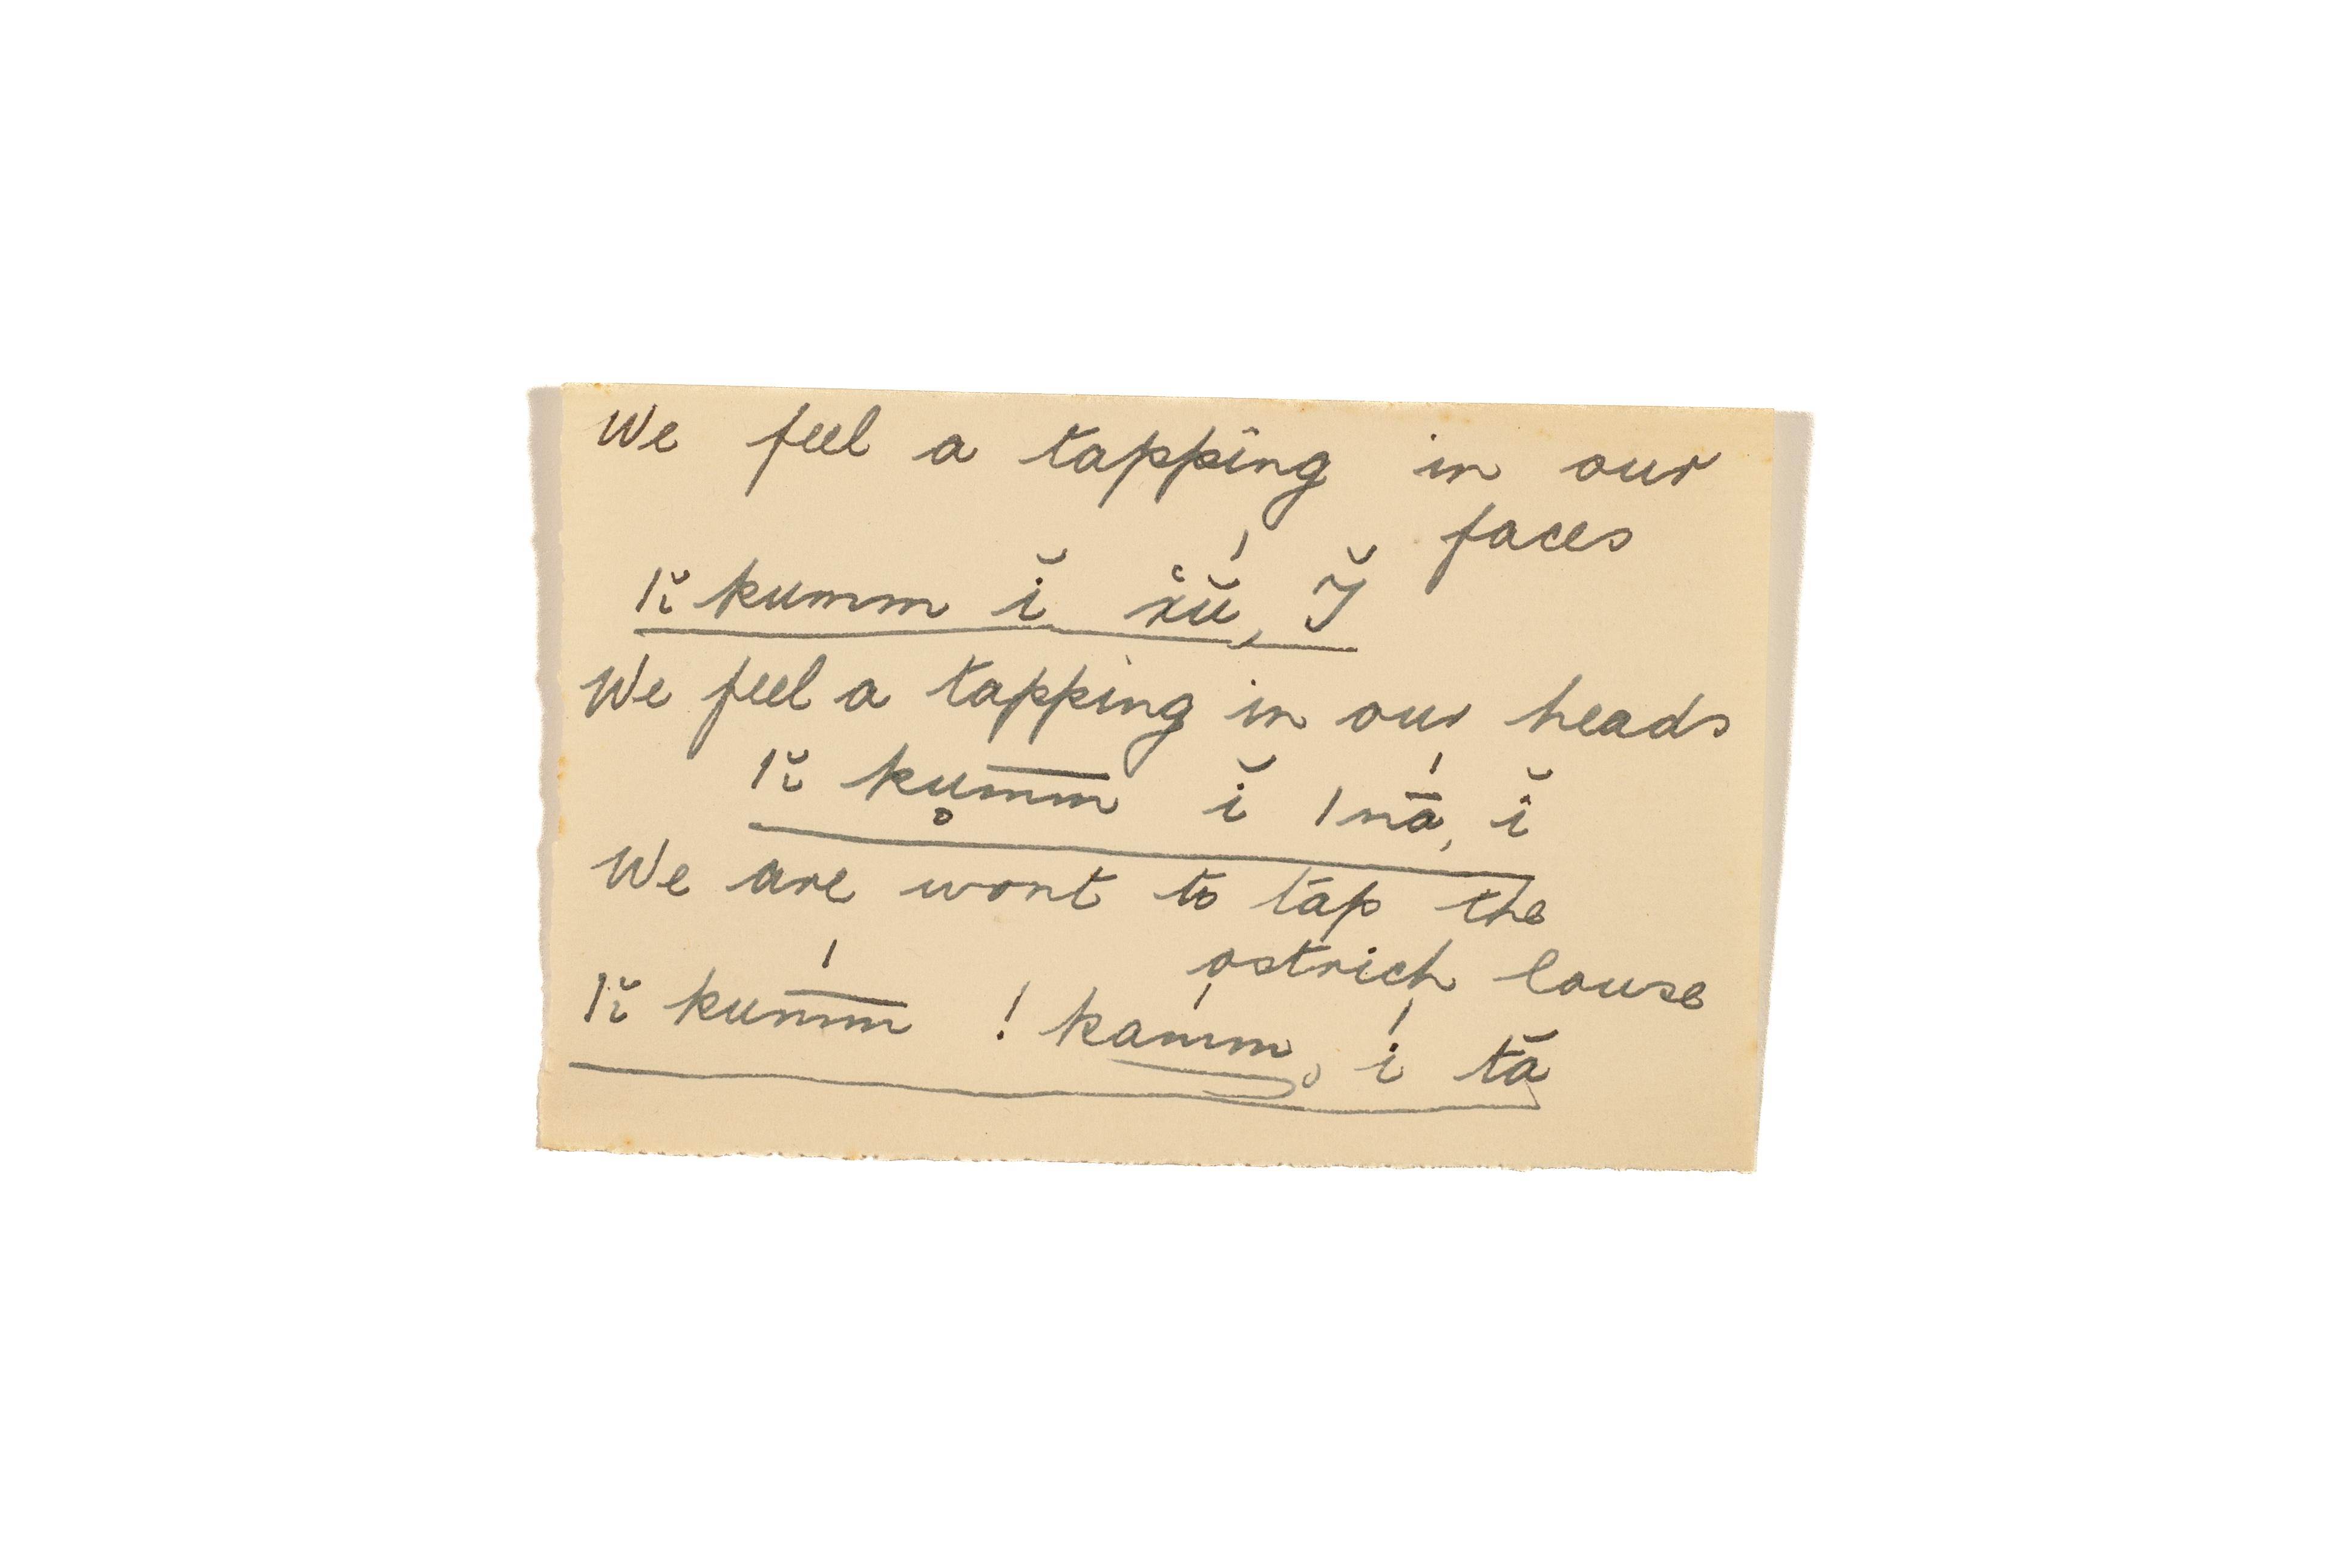 We feel a tapping in our
faces
|ĭ kumm ĭ x̔ŭ́, Ĭ
We feel a tapping in our heads
|ĭ ku̥m̅m̅ ĭ |nā́, ĭ
We are wont to tap the
ostrich louse
|ĭ kum̅́m̅ !kámm̥ í tā